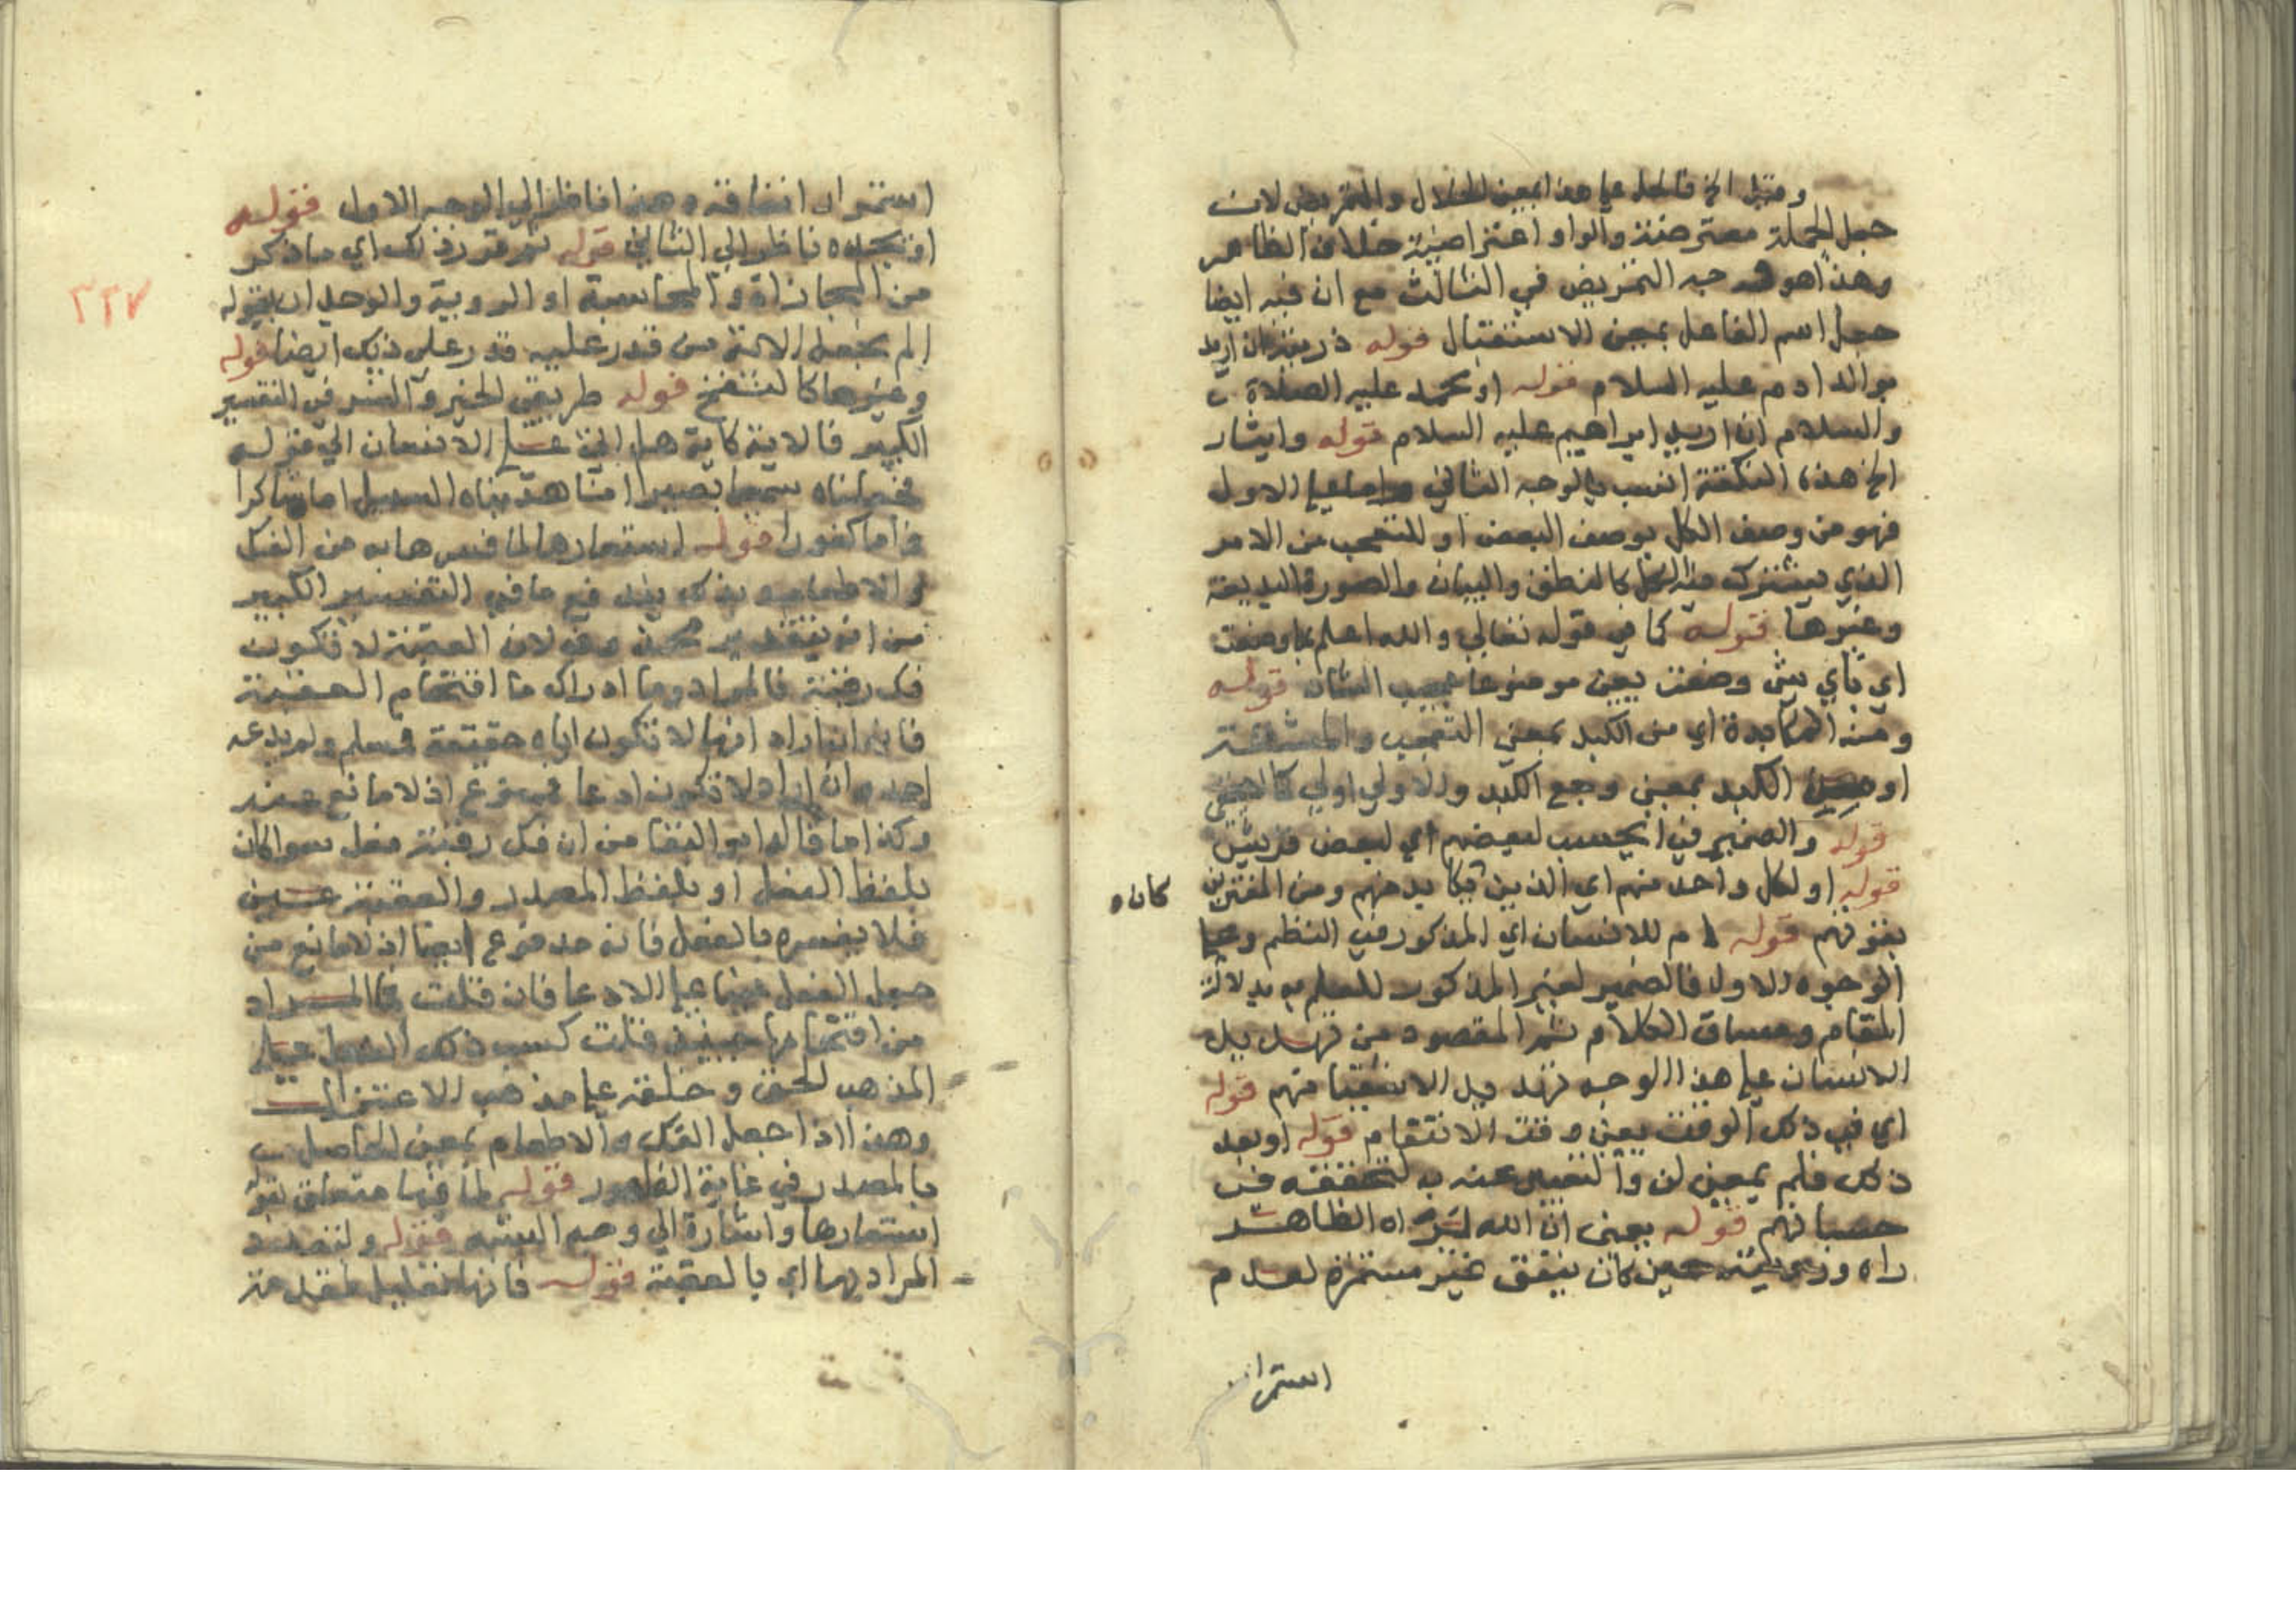 وقيل الخ فالحل على هذا بمعنى الحلال والتمريض لان
جعل الجملة معترضة والواو اعتراضية خلاف الظاهر
وهذا هو وجه التمريض في الثالث مع ان فيه ايضا
جعل اسم الفاعل بمعنى الاستقبال قوله ذريته ان اريد
بوالد ادم عليه السلام قوله او محمد عليه الصلاة
والسلام ان اريد ابراهيم عليه السلام قوله وايثار
الخ هذه النكتة انسب بالوجه الثاني واما على الاول
فهو من وصف الكل بوصف البعض او للتعجب من الامر
الذي يشترك فيه الكل كالنطق والبيان والصورة البديعة
وغيرها قوله كما في قوله تعالى والله اعلم بما وضعت
اي باي شي وضعت يعني موضوعا عجيب الشان قوله
ومنه المكابدة اي من الكبد بمعنى التعب والمشقة
او من الكبد بمعنى وجع الكبد والاولى اولى كما لا يخفى
قوله والضمير في ايحسب لبعضهم اي لبعض قريش
قوله او لكل واحد منهم اي الذين يكابد منهم ومن المغترين
كان
بقوتهم قوله ام للانسان اي المذكور في النظم وعلى
الوجوه الاول فالضمير لغير المذكور للعلم به بدلالة
المقام ومساق الكلام ثم المقصود من تهديد
الانسان على هذا الوجه تهديد الاشقيا منهم قوله
اي في ذلك الوقت يعني وقت الانتقام قوله او بعد
ذلك فلم بمعنى لن والتعبير عنه به لتحققه في
حسبانهم قوله يعني ان الله يراه الظاهر
راه ورويته حين كان ينفق غير مستمرة لعدم
استمرار
٣٢٧
استمرار انفاقه وهذا ناظر الى الوجه الاول قوله
او يجده ناظر الى الثاني قوله ثم قرر ذلك اي ما ذكر
من المجازاة والمحاسبة او الروية والوجدان بقوله
الم نجعل الاية من قدر عليه قدر على ذلك ايضا قوله
وغيرها كالنفخ قوله طريقي الخير والشر في التفسير
الكبير فالاية كاية هل اتى على الانسان الى قوله
فجعلناه سميعا بصيرا انا هديناه السبيل اما شاكرا
واما كفورا قوله استعارها لما فسرها به من الفك
والاطعام وبذلك يندفع ما في التفسير الكبير
من انه بتقدير محذوف لان العقبة لا تكون
فك رقبة فالمراد وما ادراك ما اقتحام العقبة
فانه ان اراد انها لا تكون اياه حقيقة فمسلم ولم يدعه
احد وان اراد لا تكون ادعا فممنوع اذ لا مانع عنه
وكذا ما قاله ابو البقا من ان فك رقبة فعل سوا كان
بلفظ الفعل او بلفظ المصدر والعقبة عين
فلا يفسره بالفعل فانه مدفوع ايضا اذ لا مانع من
جعل الفعل عينا على الادعا فان قلت فما المراد
من اقتحامها حينئذ قلت كسب ذلك الفعل على
المذهب الحق وخلقه على مذهب الاعتزال
وهذا اذا جعل الفك والاطعام بمعنى الحاصل
بالمصدر في غاية الظهور قوله لما فيها متعلق بقوله
استعارها واشارة الى وجه الشبه قوله ولتعدد
المراد بها اي بالعقبة قوله فانها